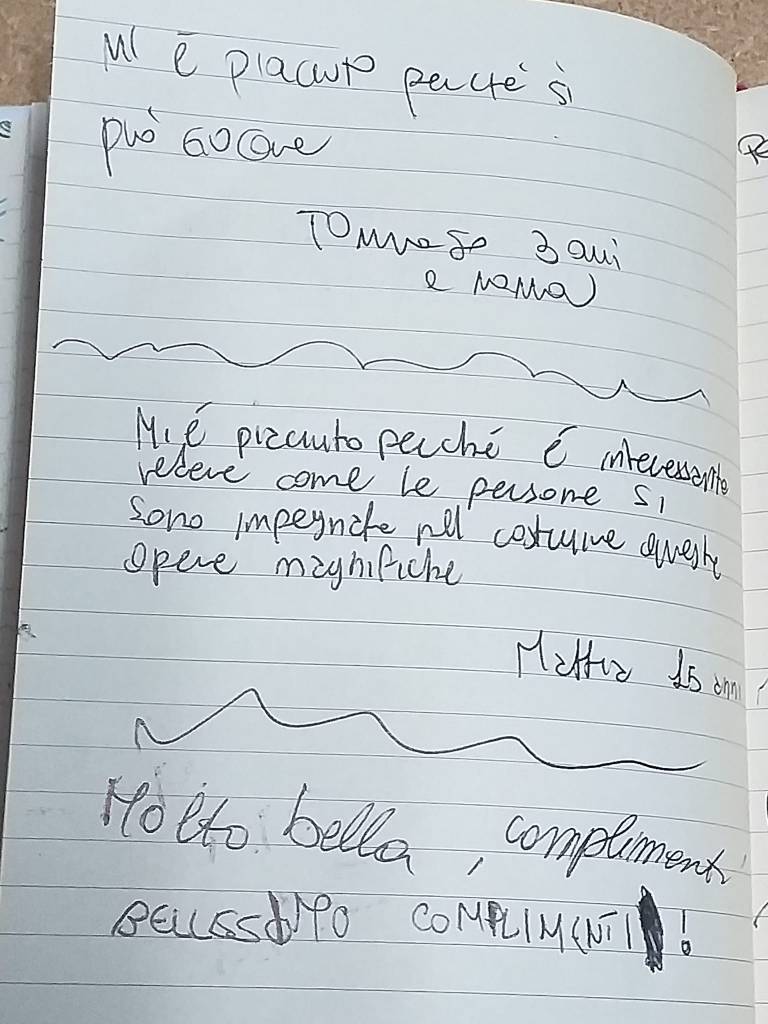 Mi è piaciuto perché si
può giocare
Tommaso 3 anni
e mamma
Mi é piaciuto perché é interessante
vedere come le persone si
sono impegnate nel costruire queste
opere magnifiche
Mattia 15 anni
Molto bella, complimenti
BELLISSIMO COMPLIMENTI!